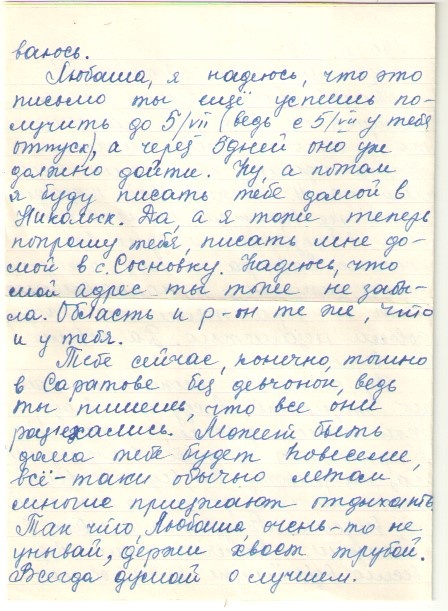 ваюсь.
Любаша, я надеюсь, что это
письмо ты ещё успеешь по-
лучить до 5/VII (ведь с 5/VII у тебя
отпуск), а через 5 дней оно уж
должно дойти. Ну, а потом
я буду писать тебе домой в
Никольск. Да, а я тоже теперь
попрошу тебя, писать мне до-
мой в с. Сосновку. Надеюсь, что
мой адрес ты тоже не забы-
ла. Область и р-он те же, что
и у тебя.
Тебе сейчас, конечно, тошно
в Саратове без девчонок, ведь
ты пишешь, что все они
разъехались. Может быть
дома тебе будет повеселее,
всё-таки обычно летом
многие приезжают отдыхать.
Так что, Любаша, очень-то не
унывай, держи хвост трубой.
Всегда думай о лучшем.